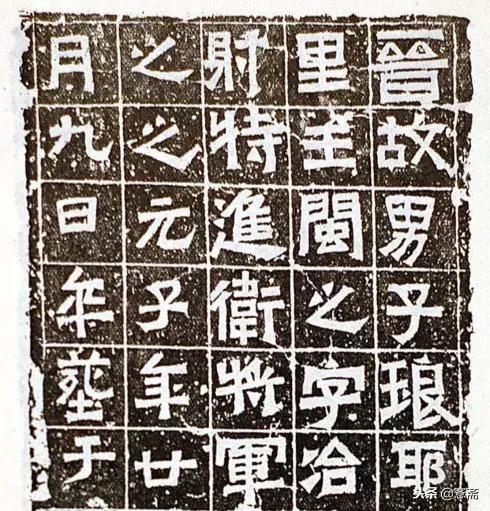 晉故男子琅耶
里王閩之字冶
射特進衛將軍
之之元子年廿
月九日卒葬于
头条